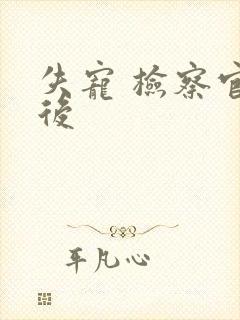 失寵 檢察官
後
平凡心